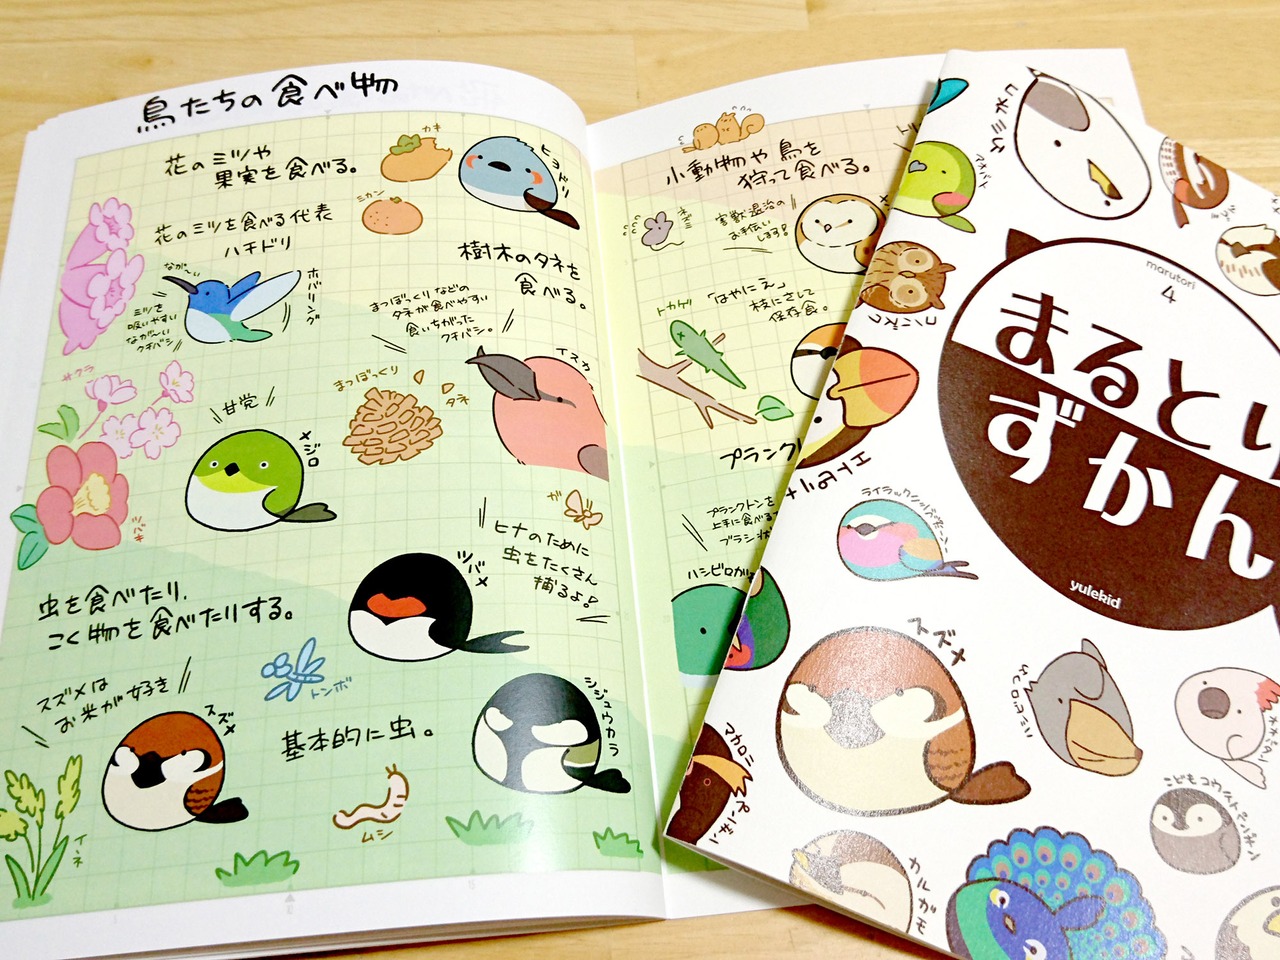 鳥たちの食べ物
花のミツや
果実を食べる。
カキ
ミカン
ヒヨドリ
花のミツを食べる代表
ハチドリ
なが〜い
ミツを
吸いやすい
なが〜い
クチバシ
ホバリング
樹木のタネを
食べる。
まつぼっくりなどの
タネが食べやすい
食いちがった
クチバシ。
イスカ
サクラ
甘党
メジロ
まつぼっくり
タネ
ツバキ
ツバメ
ガ
ヒナのために
虫をたくさん
捕るよ!
虫を食べたり、
こく物を食べたりする。
スズメは
お米が好き
スズメ
トンボ
基本的に虫。
シジュウカラ
イネ
ムシ
小動物や鳥を
狩って食べる。
害獣退治の
お手伝い
します!
トカゲ
「はやにえ」
枝にさして
保存食。
プランク
プランクトンを
上手に食べる
ブラシ状
ハシビロガ
marutori
4
まるとり
ずかん
yulekid
コキンメ
ライラックニシブッポウソウ
スズメ
マカロニ
ペンギン
カルガモ
こどもコウテイペンギン